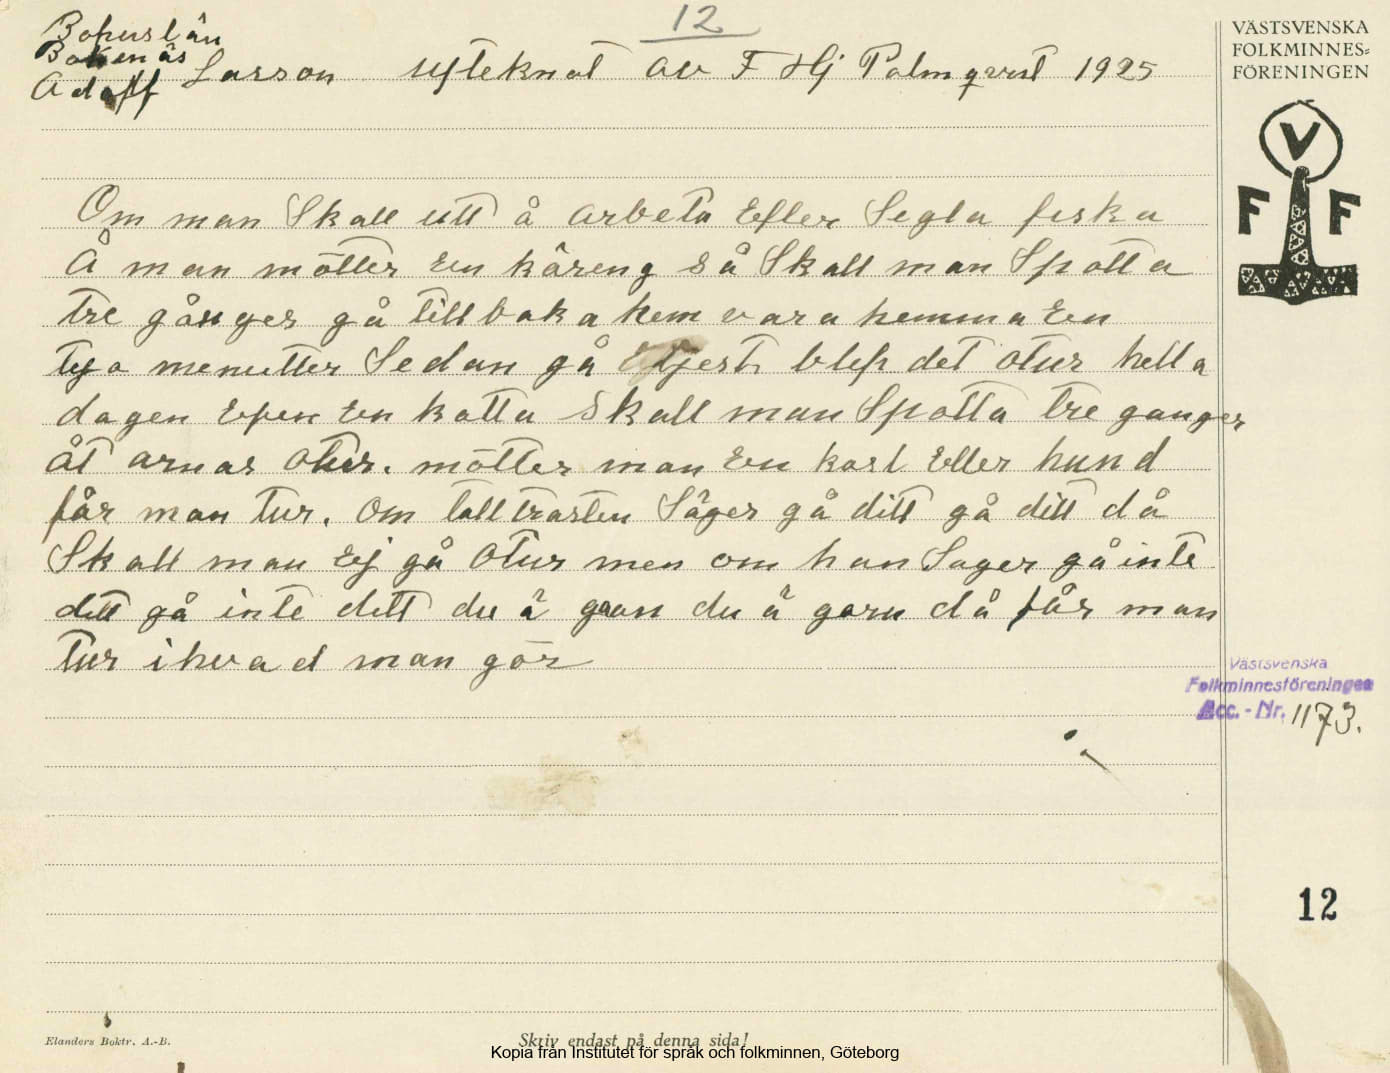 12
Bohuslän
Bokenäs
Adolf Larson upteknat av F Hj Palmqvist 1925
VÄSTSVENSKA
FOLKMINNES-
FÖRENINGEN
V
F F
Om man Skall utt å arbeta Eller Segla feska
Å man mötter En käreng Så Skall man Spotta
tre gånger gå tillbaka hem vara hemma En
tejo menutter Sedan gå blef det otur hella
dagen Even En katta Skall man Spotta tre ganger
åt arnas otur. mötter man En karl Eller hund
får man tur. Om talltrasten Säger gå ditt gå ditt då
Skall man Ej gå Otur men om han Sager gå inte
ditt gå inte ditt du ä garn du ä garn då får man
tur i hvad man gör
Västsvenska
Folkminnesföreningen
Acc. - Nr. 1173.
12
Elanders Boktr. A.-B.
Skriv endast på denna sida!
Kopia från Institutet för språk och folkminnen, Göteborg